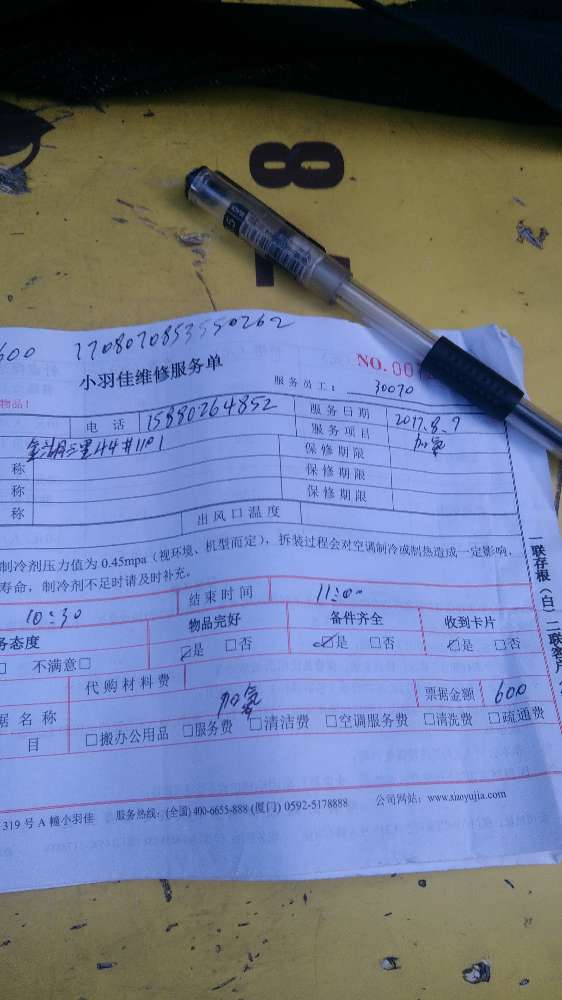 8
600 170807085355026２
小羽佳维修服务单
NO.00
服务员工： 30070
物品！
电话 15880264852 服务日期 2017.8.7
金湖三里44#1101 服务项目 加氟
称 保修期限
称 保修期限
称 保修期限
出风口温度
制冷剂压力值为 0.45mpa（视环境、机型而定），拆装过程会对空调制冷或制热造成一定影响，
寿命，制冷剂不足时请及时补充。
10:30 结束时间 11:00
务态度 物品完好 备件齐全 收到卡片
□ 不满意□ ☑是 □否 ☑是 □否 ☑是 □否
代购材料费
据名称 加氟 票据金额 600
目 □搬办公用品 □服务费 □清洁费 □空调服务费 □清洗费 □疏通费
319 号 A 幢小羽佳 服务热线：(全国) 400-6655-888 (厦门) 0592-5178888 公司网站：www.xiaoyujia.com
一联存根（白）二联客户